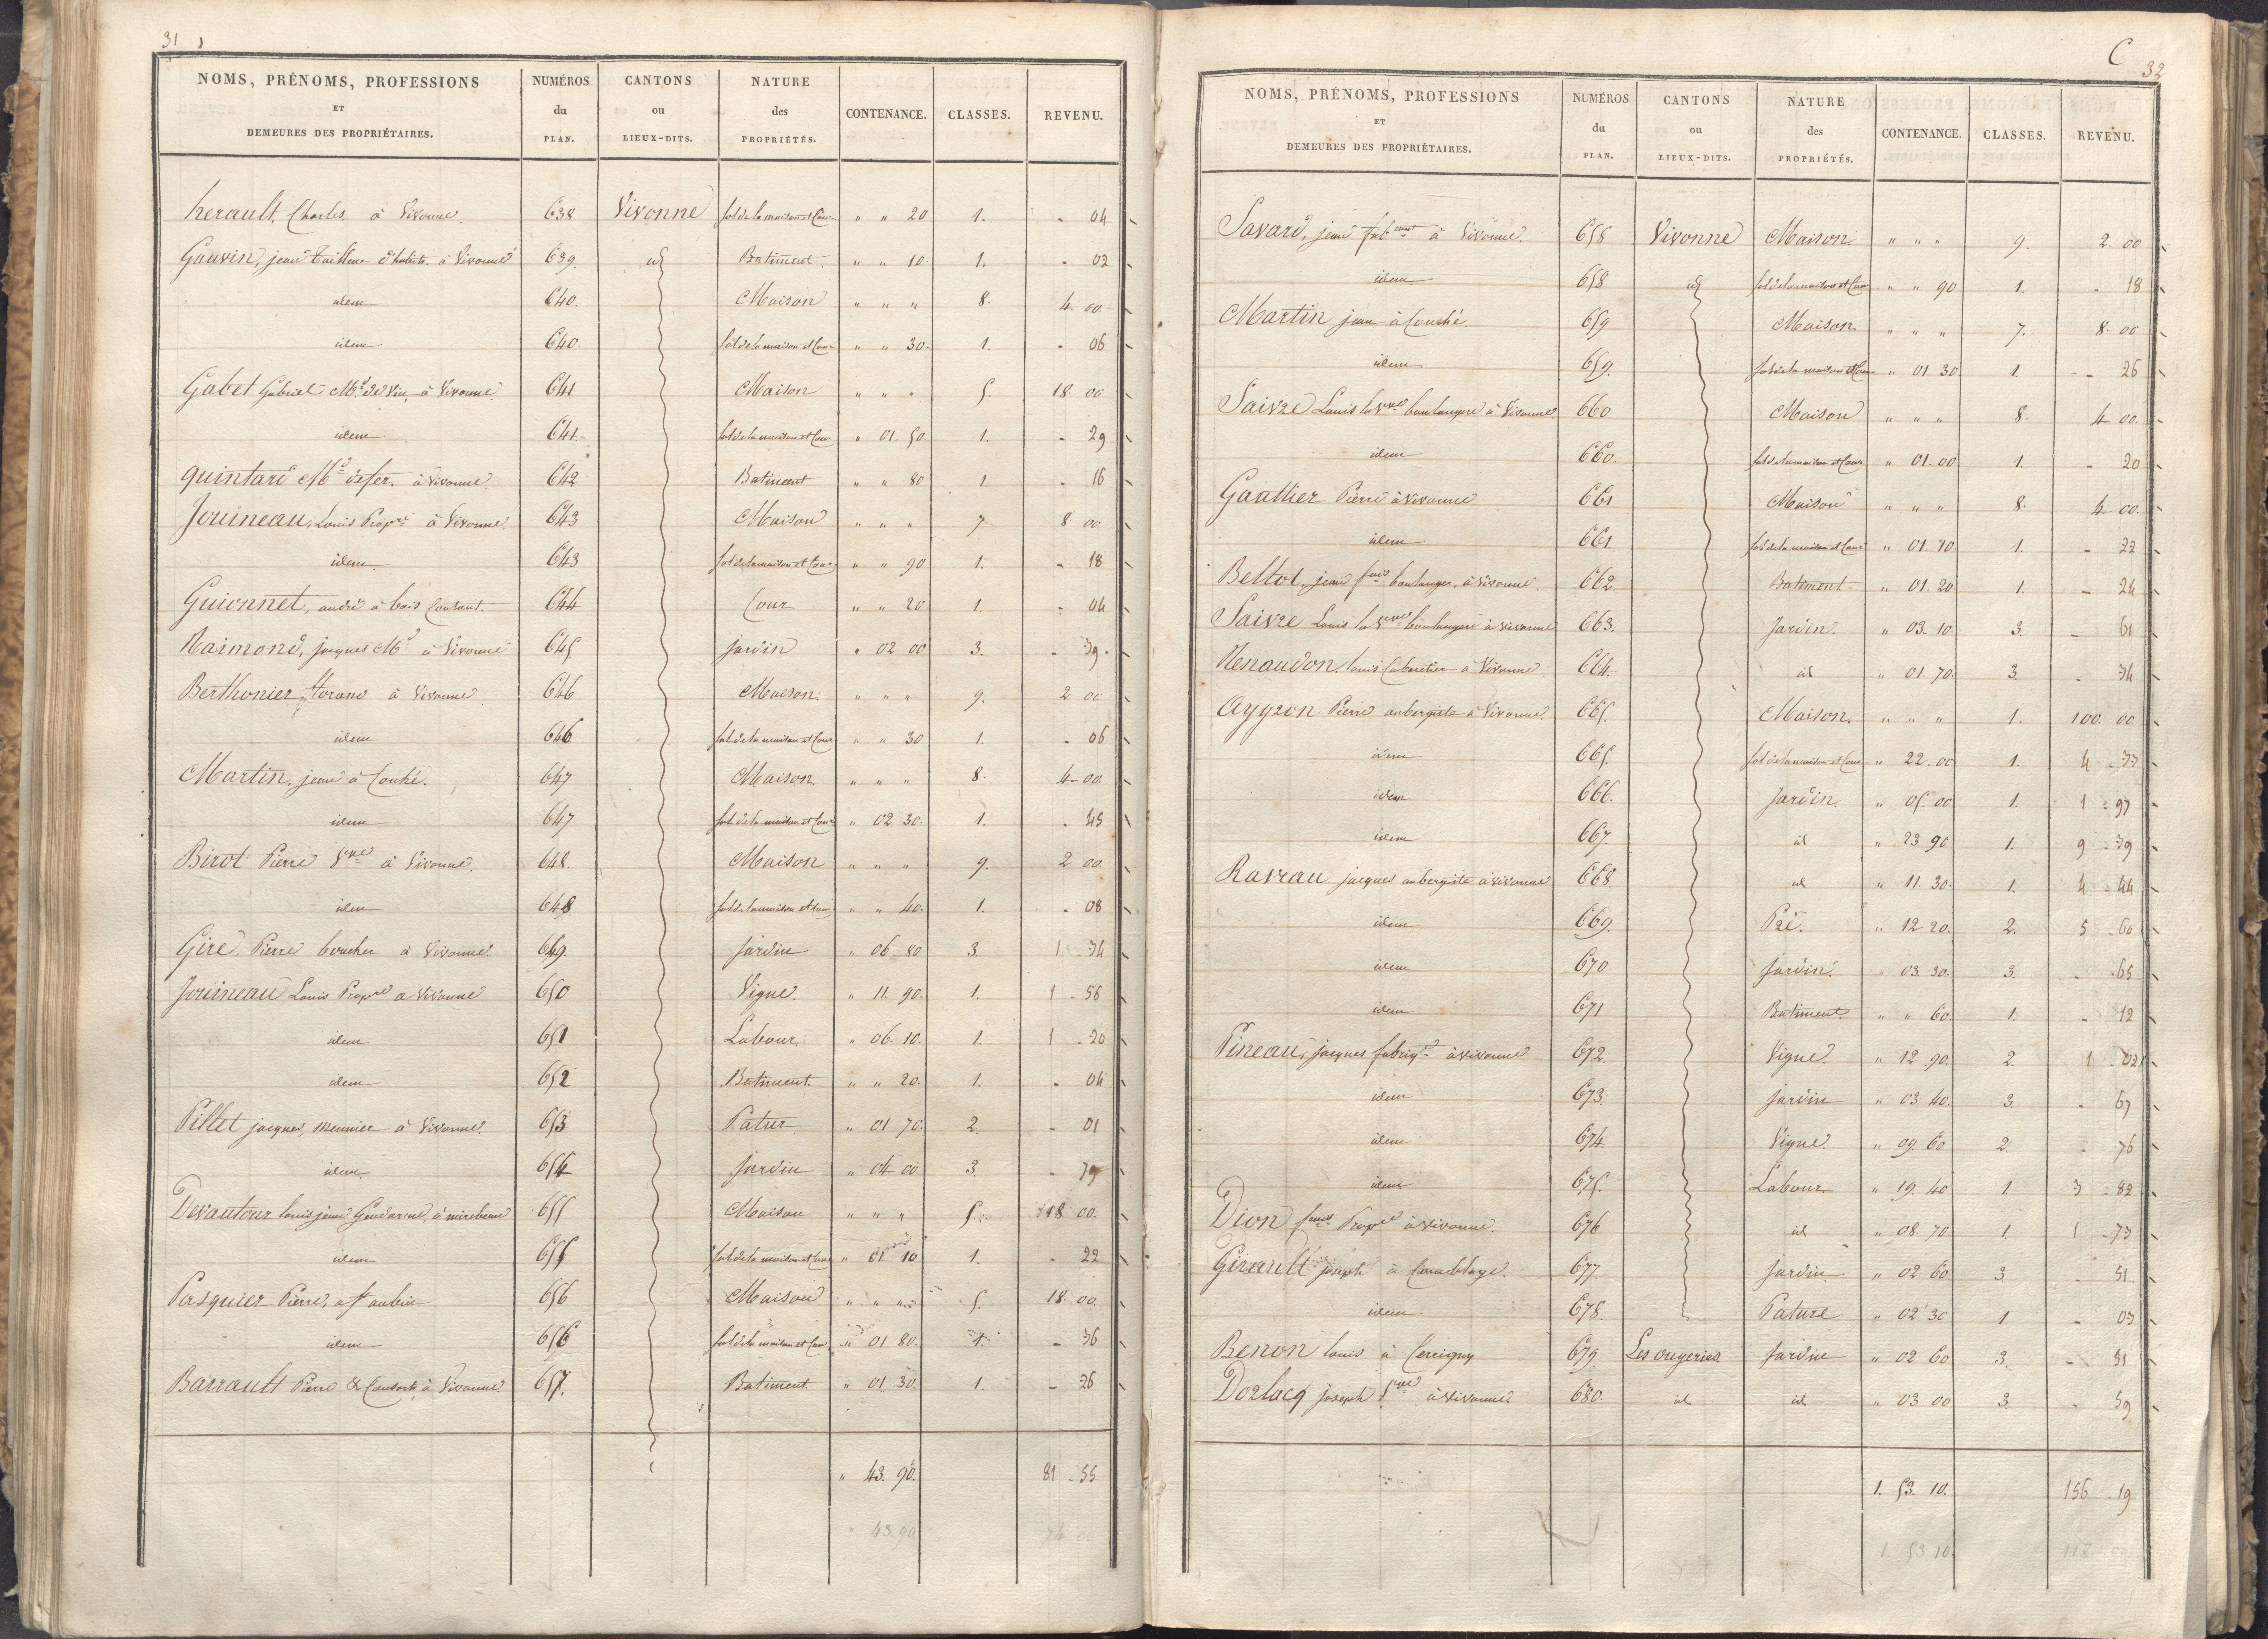 31
NOMS, PRÉNOMS, PROFESSIONS ET DEMEURES DES PROPRIÉTAIRES. NUMÉROS du PLAN. CANTONS ou LIEUX-DITS. NATURE des PROPRIÉTÉS. CONTENANCE. CLASSES. REVENU.
herault, Charles, à Vivonne. 638 Vivonne sol de la maison et Cour " " 20 1. - 04
Gauvin, jean Tailleur d'habits à Vivonne 639 id Batiment " " 10 1. - 02
idem 640. Maison " " " 8. 4 00
idem 640 sol de la maison et Cour " " 30. 1. - 06
Gabet Gabriel Md. de Vin, à Vivonne. 641 Maison " " " 5. 18 00
idem 641. sol de la maison et Cour " 01. 50. 1. - 29
quintard Md de fer. à Vivonne 642 Batiment " " 80 1. - 16
Jouineau, Louis Propre à Vivonne. 643 Maison " " " 7 8 00
idem. 643 sol de la maison et Cour " " 90 1. - 18
Guionnet, andré à bois Coutant. 644 Cour " " 20 1. - 04
Raimond, jacques Md à Vivonne 645 jardin " 02 00 3. - 39.
Berthonier, à Vivonne 646 Maison. " " " 9. 2 00
idem 646 sol de la maison et Cour " " 30 1. - 06
Martin, jean à Couhé. 647 Maison. " " " 8. 4-00.
idem 647 sol de la maison et Cour " 02 30. 1. - 45
Birot Pierre Vve à Vivonne. 648. Maison " " " 9. 2 00.
idem 648 sol de la maison et Cour " " 40. 1. - 08
Giré. Pierre boucher à Vivonne. 649. jardin " 06 80 3. 1 - 34
Jouineau Louis Propre a Vivonne 650 Vigne. " 11. 90. 1. 1 - 56
idem 651 Labour. " 06 10. 1. 1 - 20
idem 652 Batiment. " " 20. 1. - 04
Pillet jacques, meunier à Vivonne. 653 Patur " 01 70. 2. - 01
idem. 654 jardin " 04 00 3. - 79
Devautour louis jean Gendarme, à mirebeau 655 Maison " " " 5. 18 00.
idem 655 sol de la maison et Cour " 01. 10 1. - 22
Pasquier Pierre, a St aubin 656 Maison " " " 5. 18 00.
idem 656 sol de la maison et Cour " 01 80. 1. - 36
Barrault Pierre & Consorts, à Vivonne. 657. Batiment. " 01 30. 1. - 26
" 43. 90. 81 - 55
43 90 74
C
32
NOMS, PRÉNOMS, PROFESSIONS ET DEMEURES DES PROPRIÉTAIRES. NUMÉROS du PLAN. CANTONS ou LIEUX-DITS. NATURE des PROPRIÉTÉS. CONTENANCE. CLASSES. REVENU.
Savard, jean fabcant à Vivonne. 658 Vivonne Maison. " " " 9. 2 00
idem 658 id sol de la maison et Cour " " 90 1. - 18
Martin jean à Couhé. 659 Maison " " " 7. 8. 00
idem 659. sol de la maison et Cour " 01 30 1. - 26
Saivre Louis la Vve boulangere à Vivonne 660 Maison " " " 8. 4 00.
idem 660. sol de la maison et Cour " 01. 00 1. - 20
Gaultier Pierre à Vivonne 661 Maison " " " 8. 4 00.
idem 661. sol de la maison et Cour " 01. 10 1. - 22
Bellot, jean fois boulanger, à Vivonne. 662 Batiment " 01. 20 1. - 24
Saivre Louis la Vve boulangere à vivonne 663. Jardin. " 03. 10. 3. - 61
Renaudon, louis Cabaretier à Vivonne 664. id " 01. 70. 3. - 34
Ayyron Pierre aubergiste à Vivonne. 665. Maison. " " " 1. 100. 00.
idem 665. sol de la maison et Cour " 22. 00 1. 4 - 33
idem 666. Jardin. " 05. 00 1. 1 - 97
idem 667. id " 23 90 1. 9 - 39
Raveau jacques aubergiste à vivonne 668. id " 11. 30. 1. 4 - 44
idem 669. Pré. " 12 20. 2. 5 - 60
idem 670 jardin. " 03. 30. 3. - 65
idem 671 Batiment. " " 60. 1. - 12
Pineau, jacques fabriqt à vivonne 672. Vigne. " 12 90. 2. 1 - 02
idem 673. jardin " 03 40. 3. - 67
idem 674. Vigne. " 09. 60 2. - 76
idem 675. Labour. " 19. 40 1 3 - 82
Dion fois Propre à vivonne. 676 id " 08 70. 1. 1 - 73
Girault joseph à Comblage. 677. jardin " 02 60 3 - 51
idem 678. Pature " 02 30 1 - 03
Benon louis à Cercigny 679. Les ougeries. Jardin " 02 60 3. - 51
Dorlacq joseph Vve à vivonne 680. id id " 03 00 3. - 59
1. 53. 10. 156 - 19
1. 53 10. 118